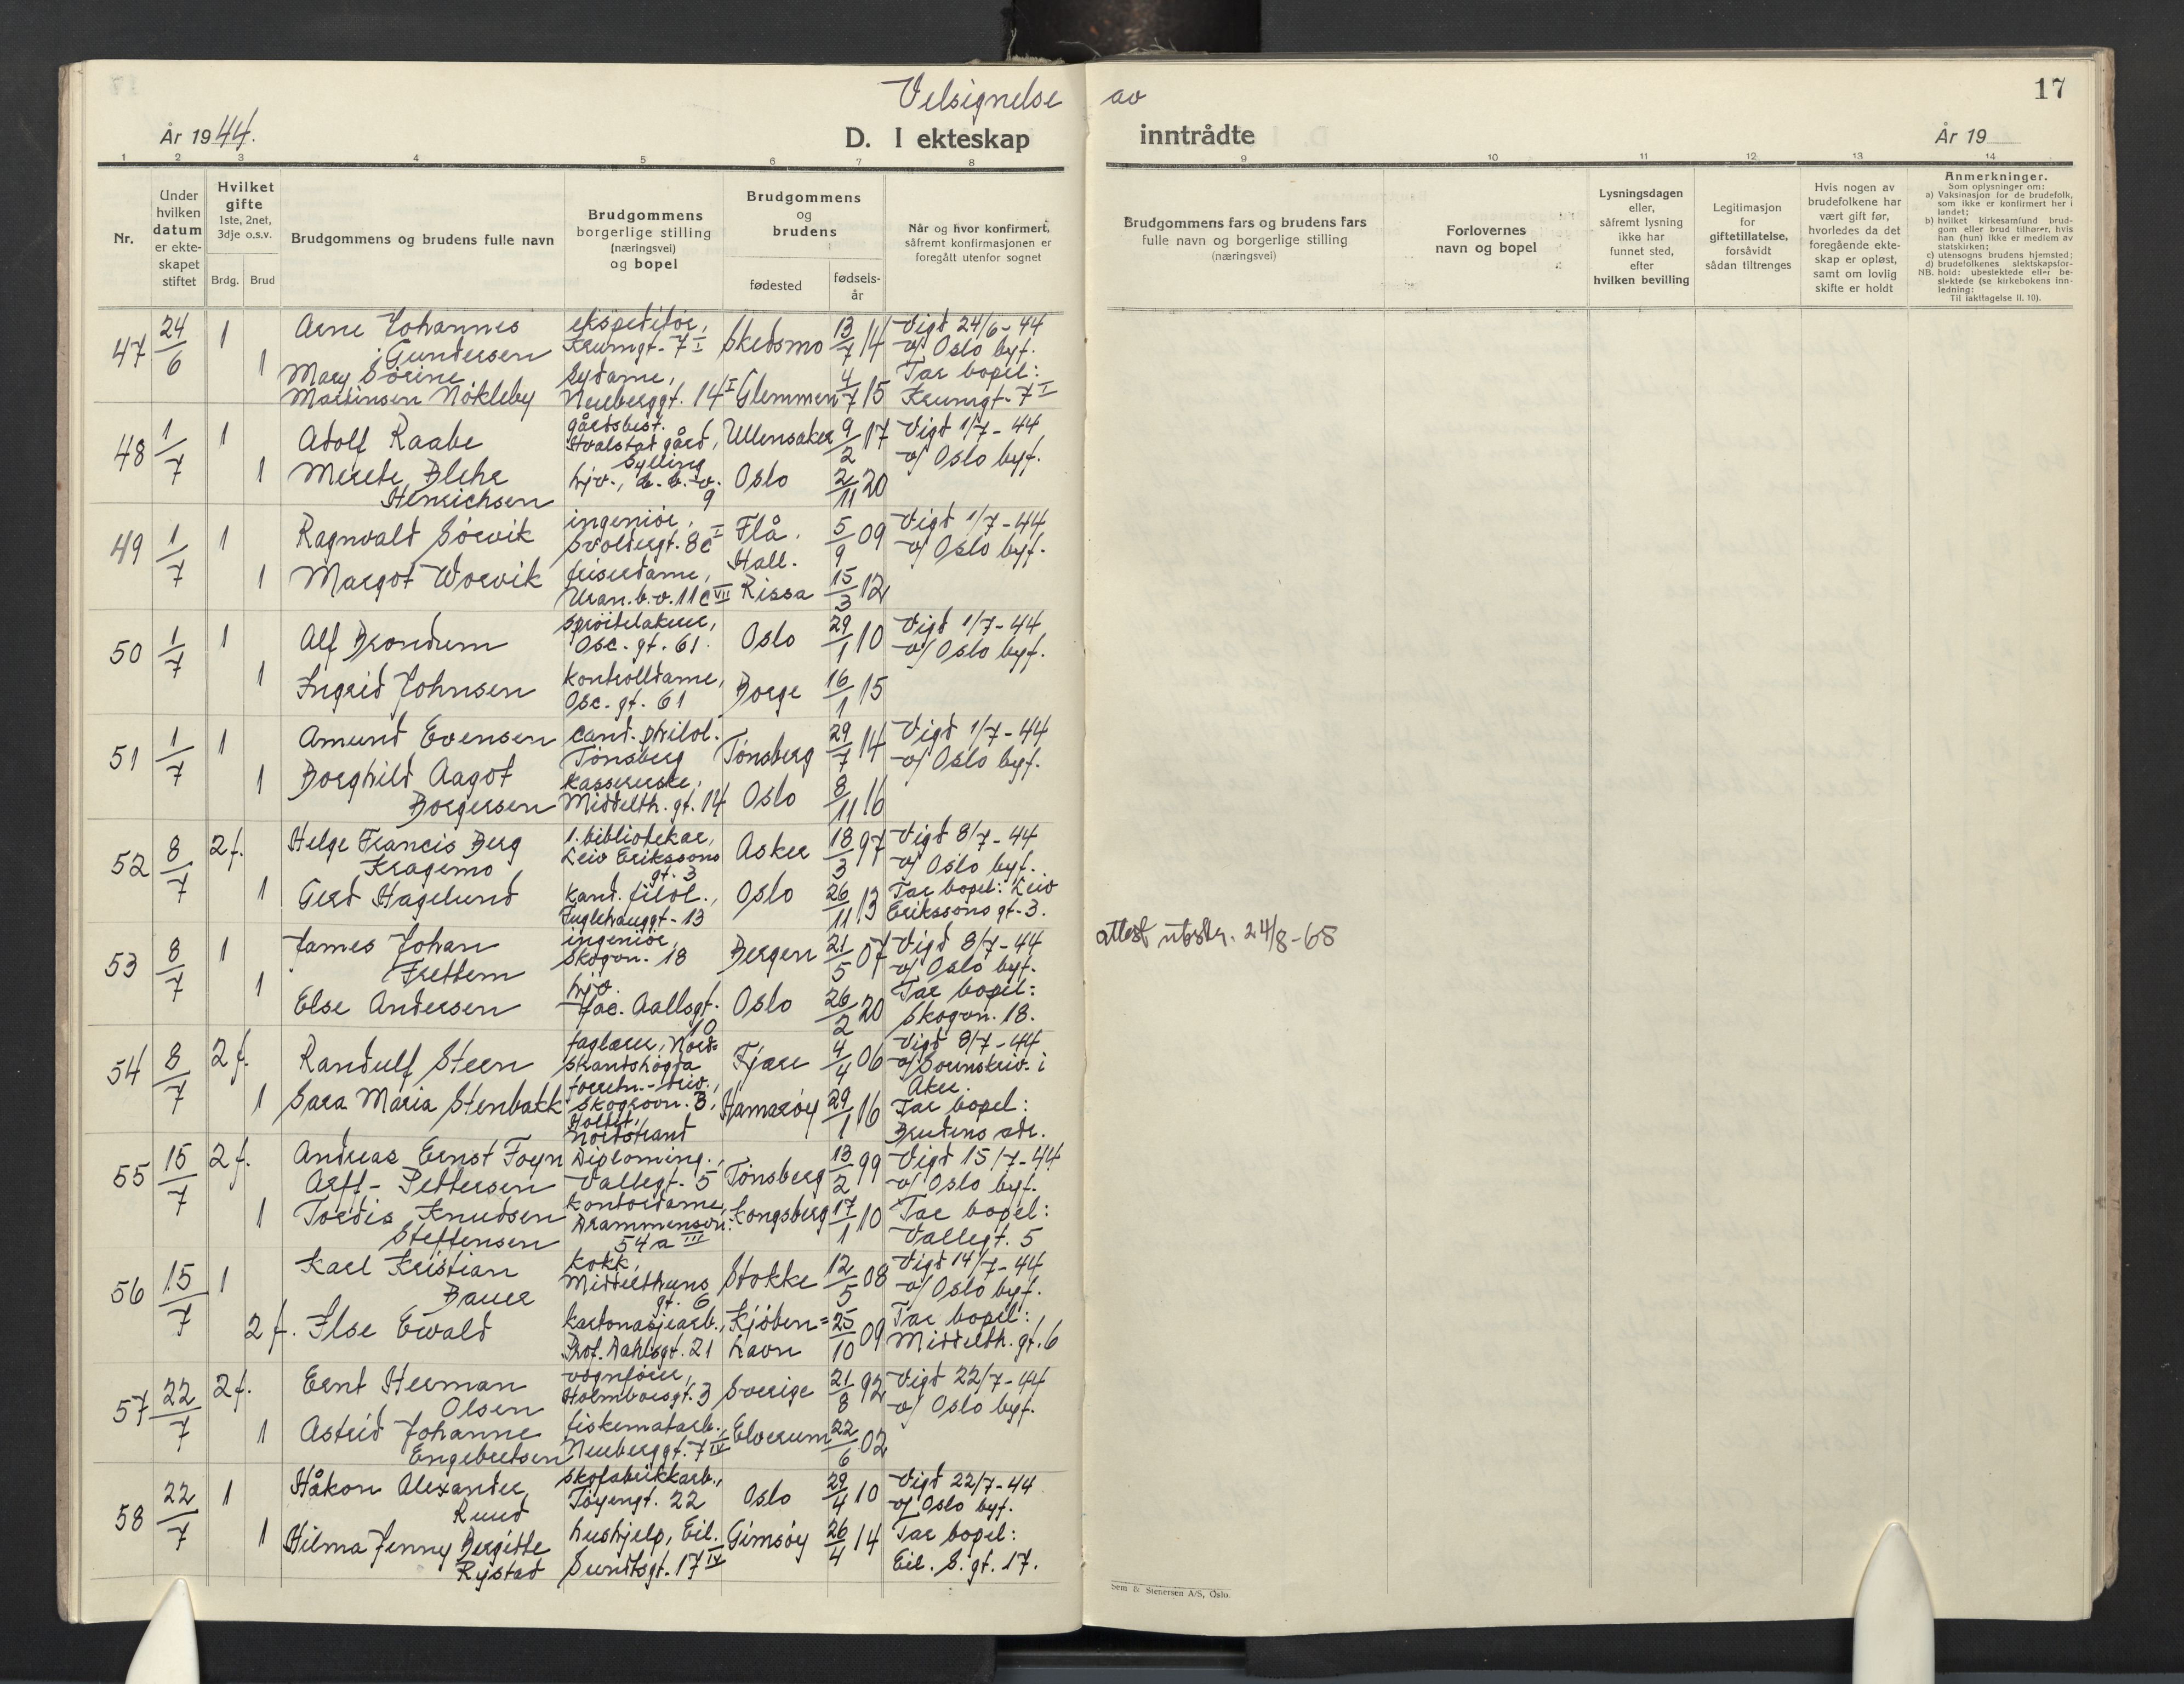 Velsignelse av
17
År 1944.
D. I ekteskap inntrådte
År 19
1 2 3 4 5 6 7 8 9 10 11 12 13 14
Nr.
Under
hvilken
datum
er ekte-
skapet
stiftet
Hvilket
gifte
1ste, 2net,
3dje o.s.v.
Brdg. Brud
Brudgommens og brudens fulle navn
Brudgommens
borgerlige stilling
(næringsvei)
og bopel
Brudgommens
og
brudens
fødested
fødsels-
år
Når og hvor konfirmert,
såfremt konfirmasjonen er
foregått utenfor sognet
Brudgommens fars og brudens fars
fulle navn og borgerlige stilling
(næringsvei)
Forlovernes
navn og bopel
Lysningsdagen
eller,
såfremt lysning
ikke har
funnet sted,
efter
hvilken bevilling
Legitimasjon
for
giftetillatelse,
forsåvidt
sådan tiltrenges
Hvis nogen av
brudefolkene har
vært gift før,
hvorledes da det
foregående ekte-
skap er opløst,
samt om lovlig
skifte er holdt
Anmerkninger.
Som oplysninger om:
a) Vaksinasjon for de brudefolk,
som ikke er konfirmert her i
landet;
b) hvilket kirkesamfund brud-
gom eller brud tilhører, hvis
han (hun) ikke er medlem av
statskirken;
c) utensogns brudens hjemsted;
d) brudefolkenes slektskapsfor-
NB. hold: ubeslektede eller be-
slektede (se kirkebokens inn-
ledning:
Til iakttagelse II. 10).
47 24/6 1 Arne Johannes Gundersen ekspeditør, Krumgt. 7 I Skedsmo 13/7 14 Vigd 24/6-44
v/ Oslo byf.
1 Mary Sørine Martinsen Nøkleby sydame, Neuberggt. 14 I Glemmen 4/7 15 Tar bopel:
Krumgt. 7 I
48 1/7 1 Adolf Raabe gårdsbest. Hvalstad gård, Sylling Ullensaker 9/2 17 Vigd 1/7-44
v/ Oslo byf.
1 Merete Blehr Henrichsen 9 Oslo 2/11 20
49 1/7 1 Ragnvald Sørvik ingeniør, Svoldergt. 8c I Flå. Hall. 5/9 09 Vigd 1/7-44
v/ Oslo byf.
1 Margot Worvik friserdame, Uran.b.v. 11c VII Rissa 15/3 12
50 1/7 1 Alf Brondum sprøitelakerer, Osc. gt. 61. Oslo 29/1 10 Vigd 1/7-44
v/ Oslo byf.
1 Ingrid Johnsen kontrolldame, Osc. gt. 61 Borge 16/1 15
51 1/7 1 Amund Evensen cand. philol. Tønsberg Tønsberg 29/7 14 Vigd 1/7-44
v/ Oslo byf.
1 Borghild Aagot Borgersen kassererske, Middelth. gt. 14 Oslo 8/11 16
52 8/7 2 f. Helge Francis Berg Kragemo 1. bibliotekar, Leiv Erikssons gt. 3 Asker 18/3 97 Vigd 8/7-44
v/ Oslo byf.
1 Gerd Hagelund kand. filol., Fuglehauggt. 13 Oslo 26/11 13 Tar bopel: Leiv
Erikssons gt. 3.
53 8/7 1 James Johan Frettem ingeniør, Skogvn. 18 Bergen 21/5 07 Vigd 8/7-44
v/ Oslo byf.
attest utstr. 24/8-65
1 Else Andersen Jac. Aallsgt. 10 Oslo 26/2 20 Tar bopel:
Skogvn. 18.
54 8/7 2 f. Randulf Steen faglærer, Nord- Skantshøgda Fjære 4/4 06 Vigd 8/7-44
v/ Sorenskriv. i
Aker.
1 Sara Maria Stenbakk forretn.-driv., Skogrovn. 3, Holtet, Nordstrand Hamarøy 29/1 16 Tar bopel:
Brudens adr.
55 15/7 2 f. Andreas Ernst Foyn Arff-Pettersen Diploming., Vallegt. 5 Tønsberg 13/2 99 Vigd 15/7-44
v/ Oslo byf.
1 Tordis Knudsen Steffensen kontordame, Drammensvn. 54 a III Kongsberg 17/1 10 Tar bopel:
Vallegt. 5
56 15/7 1 Karl Kristian Bauer kokk, Middelthuns gt. 6 Stokke 12/5 08 Vigd 14/7-44
v/ Oslo byf.
2 f. Ilse Ewald kartonasjearb., Prof. Dahlsgt. 21 Kjøben=havn 25/10 09 Tar bopel:
Middelth. gt. 6
57 22/7 2 f. Ernt Herman Olsen vognfører, Holmboesgt. 3 Sverige 21/8 92 Vigd 22/7-44
v/ Oslo byf.
1 Astrid Johanne Engebretsen fiskematarb., Neuberggt. 7 IV Elverum 22/6 02
58 22/7 1 Håkon Alexander Ruud skofabrikkarb., Tøyengt. 22 Oslo 29/4 10 Vigd 22/7-44
v/ Oslo byf.
1 Hilma Jenny Bergitte Rystad hushjelp, Eil. Sundtsgt. 17 IV Gimsøy 26/4 14 Tar bopel:
Eil. S. gt. 17.
Sem & Stenersen A/S, Oslo.